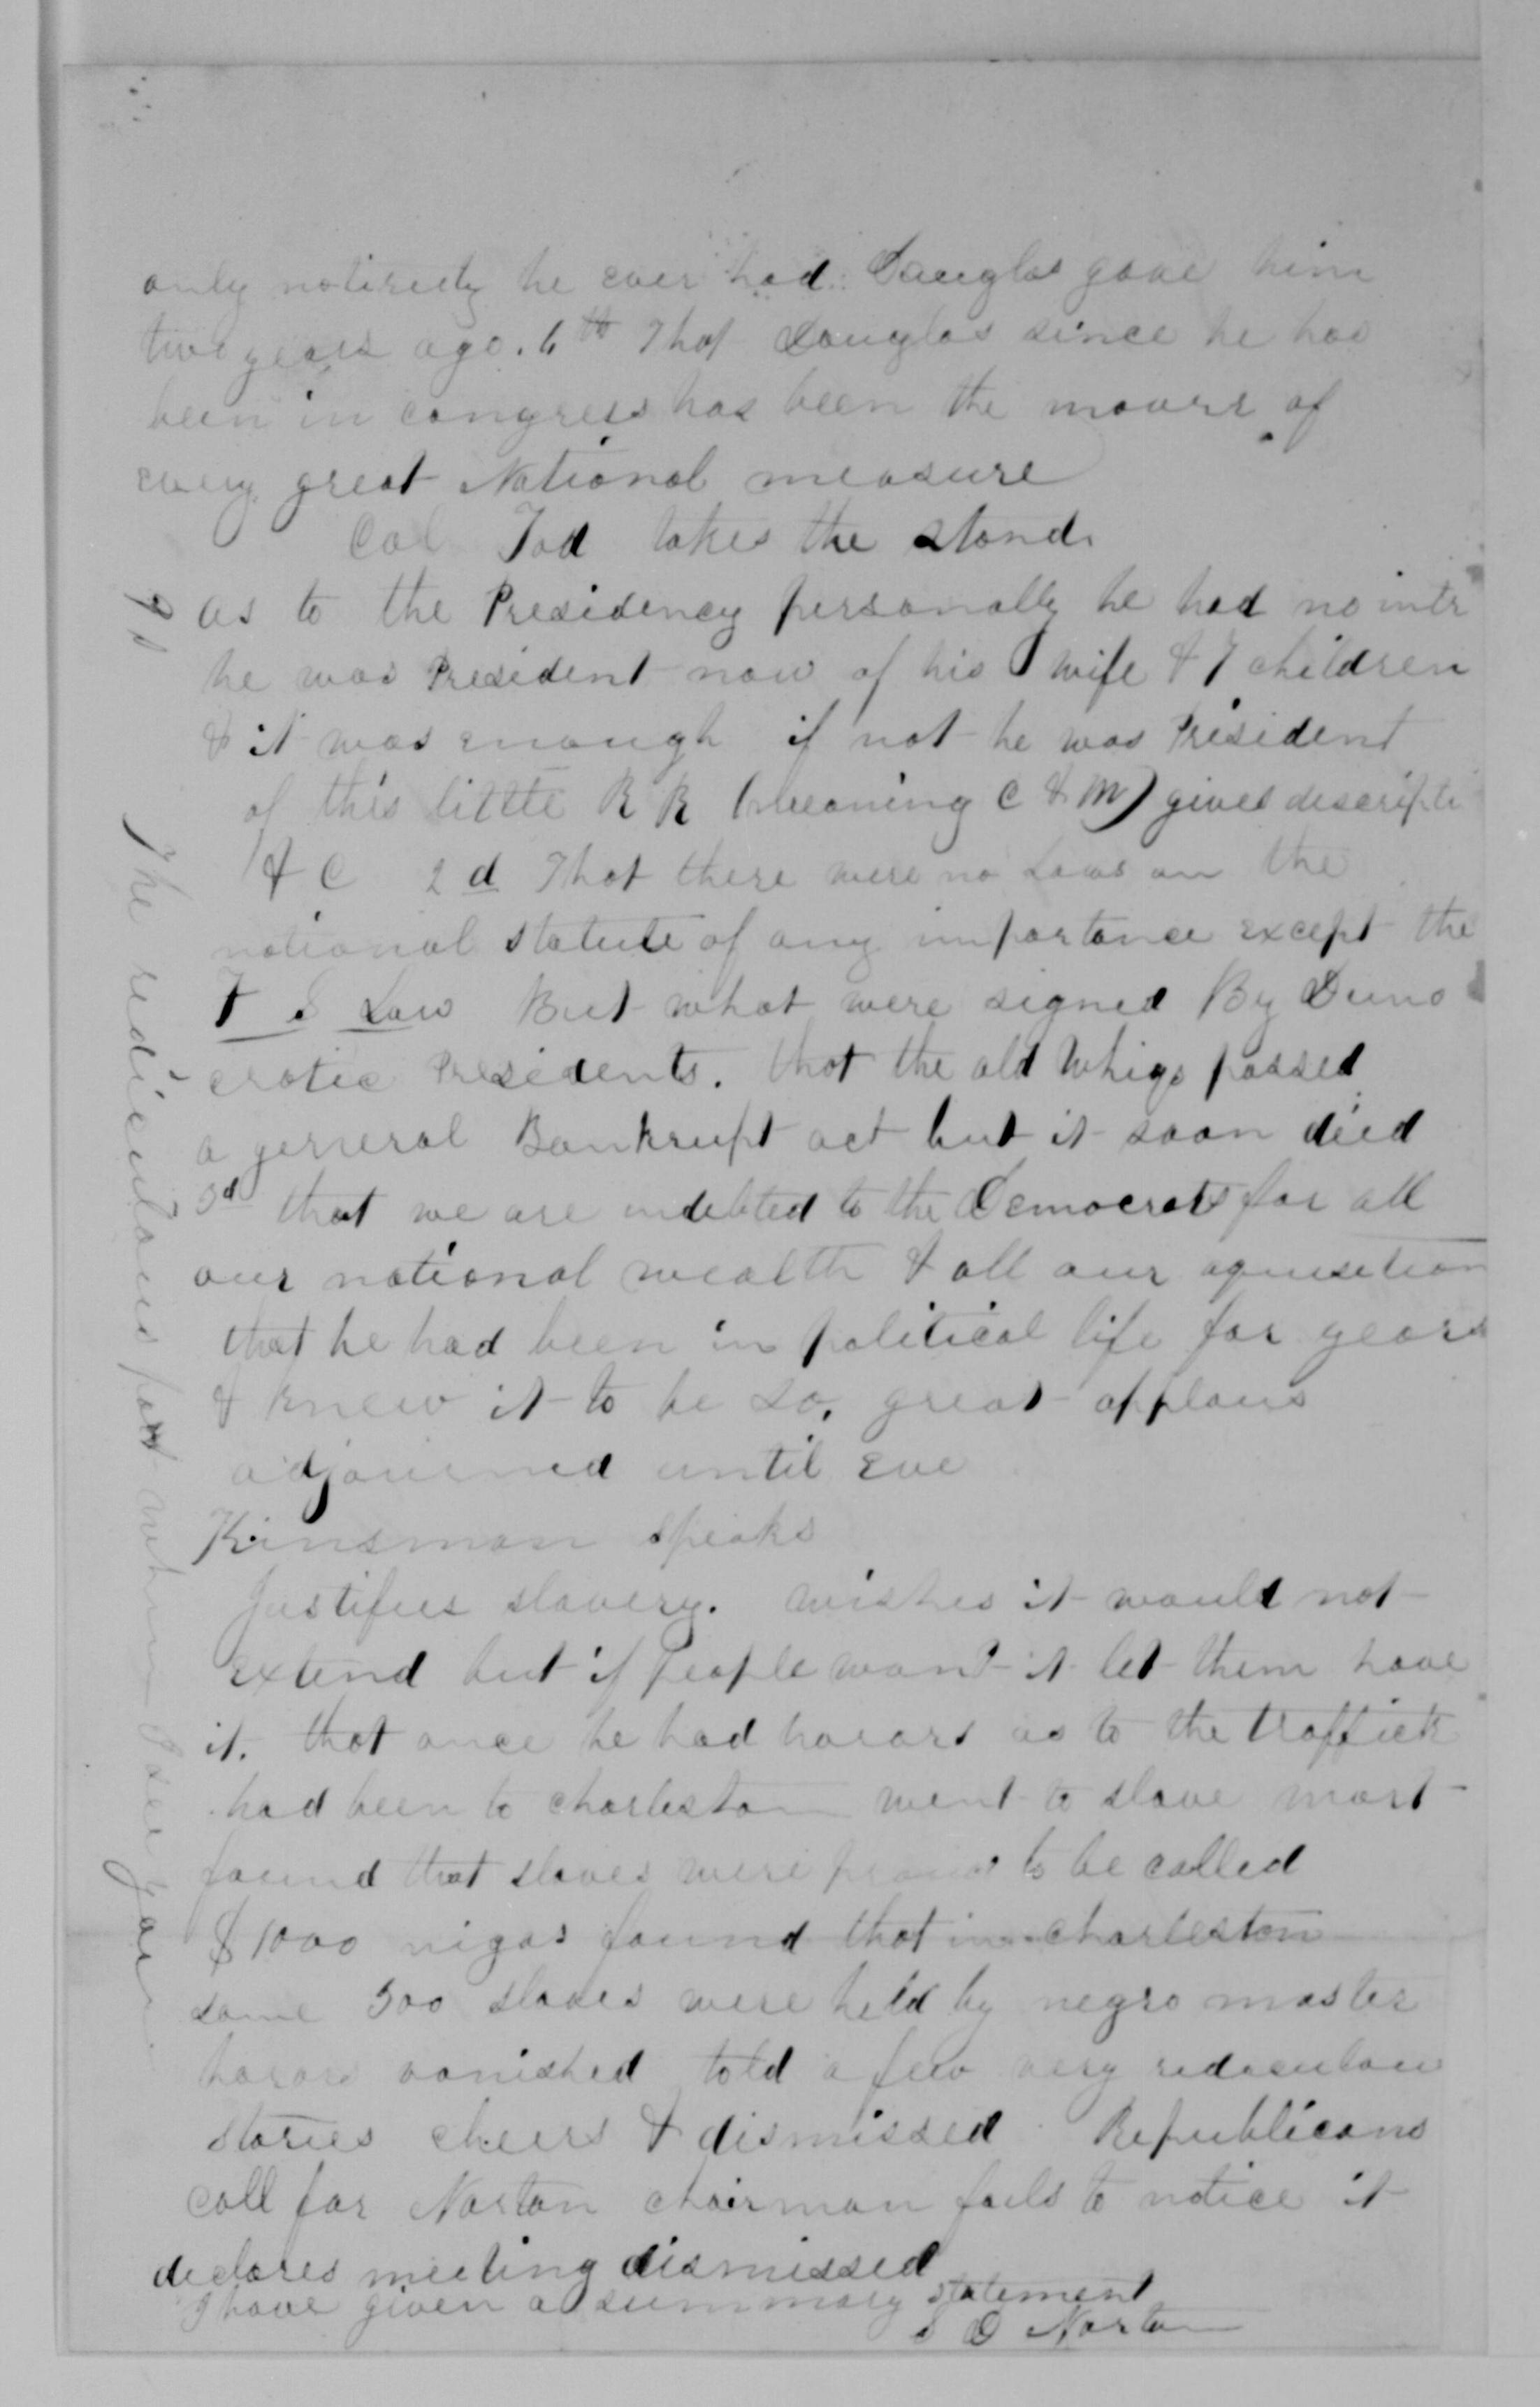 only notirirty he ever had Douglas gave him
two years ago. 6th That Douglas since he has
been in congress has been the mover of
every great National measure
Col Tod takes the stand.
as to the Presidency personally he had no intr
he was President now of his wife & 7 children
& it was enough if not he was President
of this little R R (meaning C & M) gives descripti
& C 2d That there were no Laws on the
national statute of any importance except the
F S Law But what were signed By Demo
cratic Presidents. that the old Whigs passed
a gerneral Bankrupt act but it soon died
3d that we are indebted to the Democrats for all
our national wealth & all our aquisition
that he had been in political life for years
& knew it to be so. great applaus
adjourned until Eve
Kinsman speaks
Justifies slavery. wishes it would not
extend but if people want it let them have
it. that once he had horors as to the traffick
had been to Charleston went to slave mart
found that slaves were proud to be called
$1000 nigas found that in Charleston
some 300 slaves were held by negro master
horors vanished told a few very rediculous
stories cheers & dismissed Republicans
call for Norton chairman fails to notice it
declares meeting dismissed
I have given a summary statement
S D Norton
The rediculous part when I see you